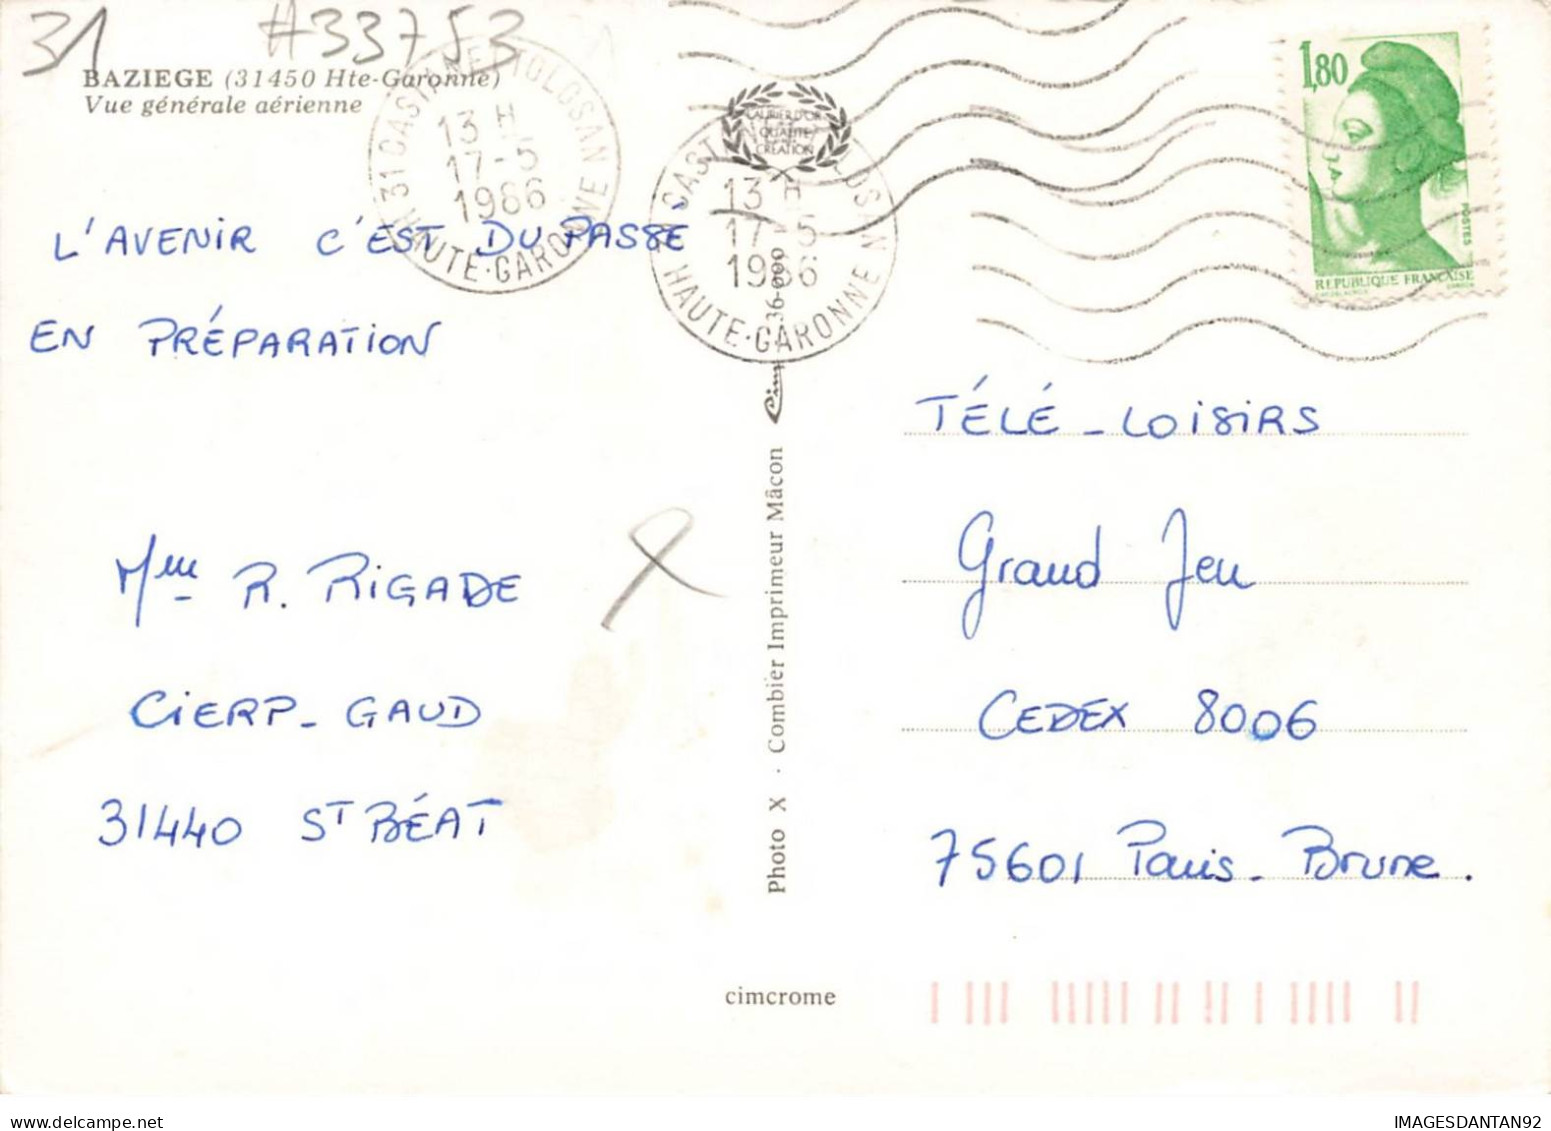 31 #33753
BAZIEGE (31450 Hte-Garonne)
Vue générale aérienne
31 CASTANET TOLOSAN
13 H
17-5
1986
HAUTE-GARONNE
LAURIER D'OR
QUALITÉ
CRÉATION
31 CASTANET TOLOSAN
13 H
17-5
1986
HAUTE-GARONNE
1,80
POSTES
REPUBLIQUE FRANÇAISE
L'AVENIR C'EST DU PASSÉ
EN PRÉPARATION
Mme R. RIGADE
CIERP-GAUD
31440 ST BÉAT
Photo X · Combier Imprimeur Mâcon
TÉLÉ-LOISIRS
Grand Jeu
CEDEX 8006
75601 Paris-Brune.
cimcrome
delcampe.net
IMAGESDANTAN92